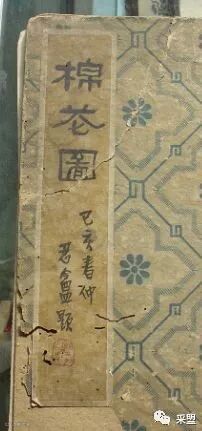 棉花圖
己亥春仲
忍盦題
采盟